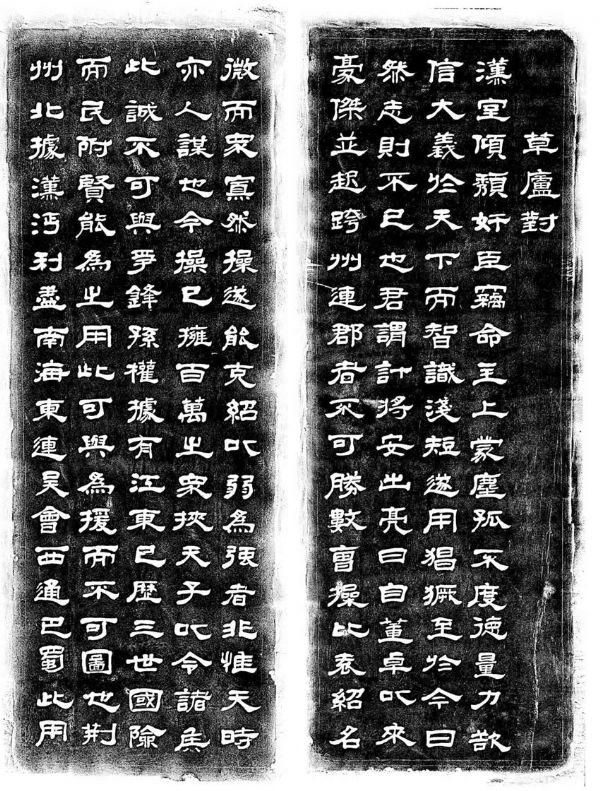 草廬對
漢室傾頹奸臣竊命主上蒙塵孤不度德量力欲
信大義於天下而智識淺短遂用猖獗至於今日
然志則不已也君謂計將安出亮曰自董卓以來
豪傑並起跨州連郡者不可勝數曹操比袁紹名
微而眾寡然操遂能克紹以弱為強者非惟天時
亦人謀也今操已擁百萬之眾挾天子以令諸侯
此誠不可與爭鋒孫權據有江東已歷三世國險
而民附賢能為之用此可與為援而不可圖也荊
州北據漢沔利盡南海東連吳會西通巴蜀此用